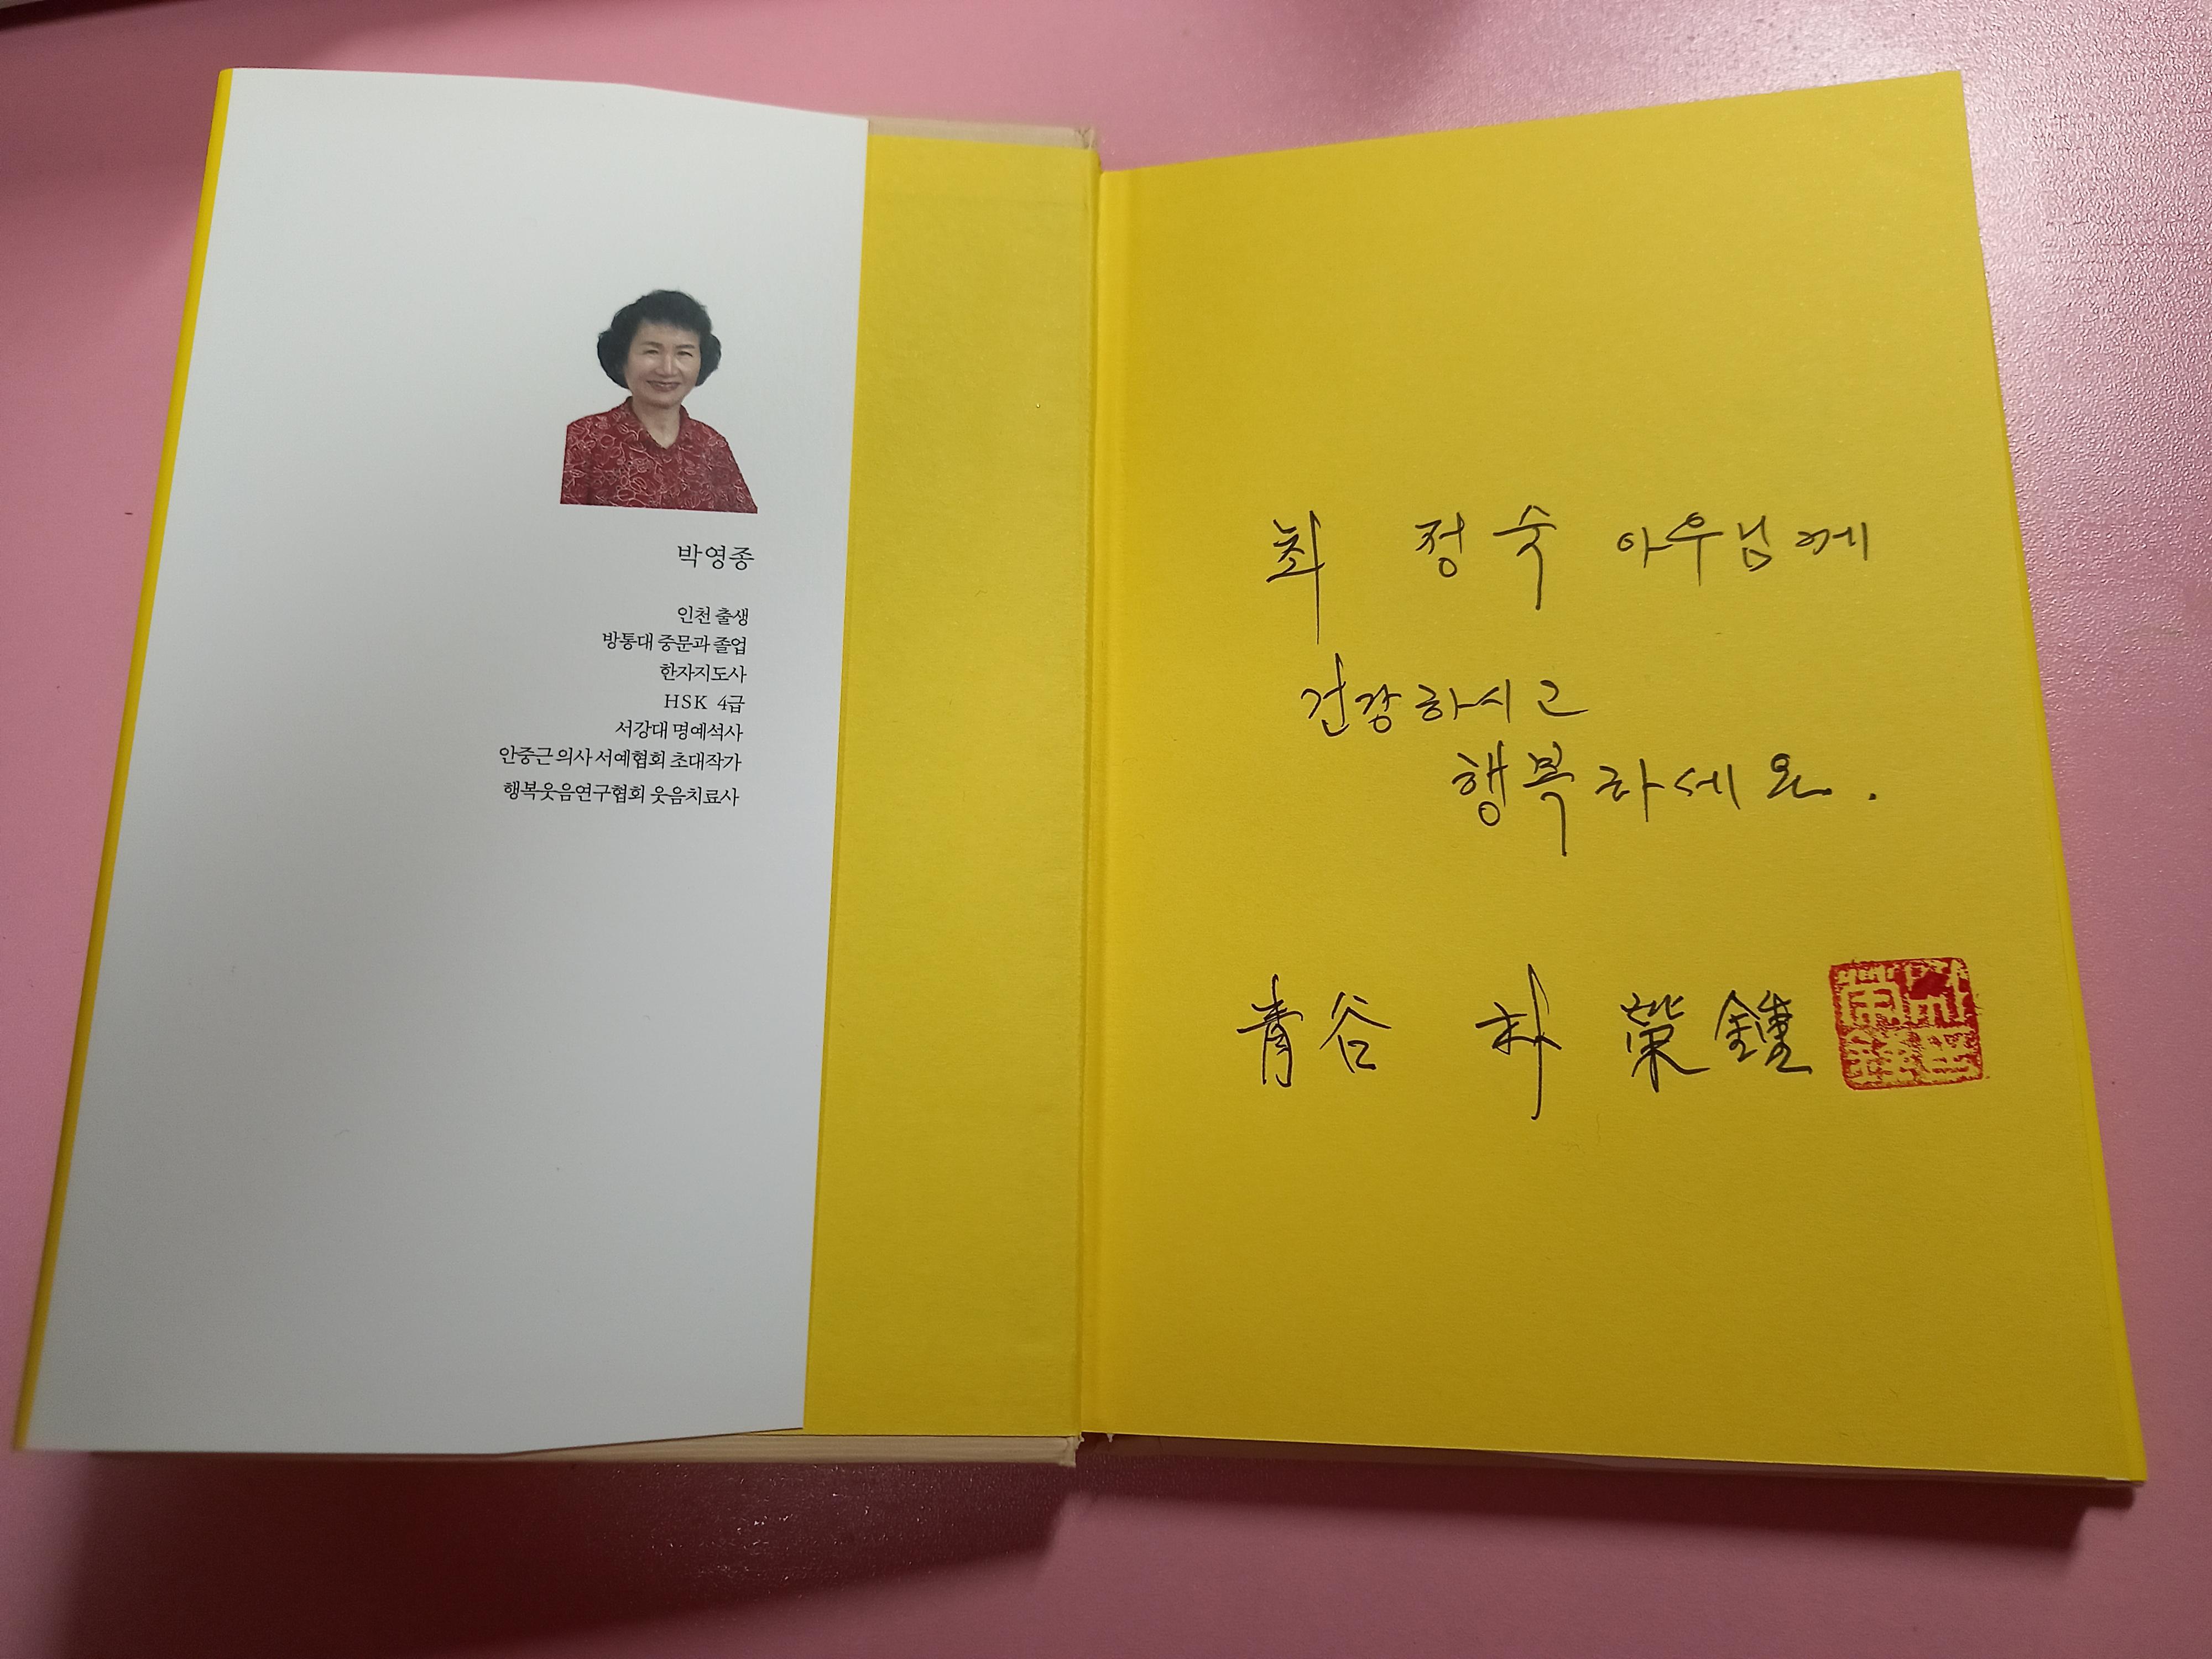 박영종
인천 출생
방통대 중문과 졸업
한자지도사
HSK 4급
서강대 명예석사
안중근 의사 서예협회 초대작가
행복웃음연구협회 웃음치료사
최 정숙 아우님께
건강하시고
행복하세요.
青谷 朴 榮鍾